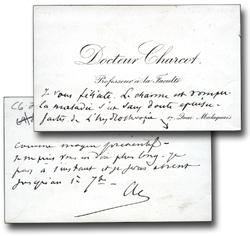 Docteur Charcot.
Professeur à la Faculté
Je vous félicite. Le charme est rompu
La maladie s'est sans doute épuisée.
faites de l'hydrothérapie 17, Quai Malaquais
comme moyen préventif.
Je ne puis vous en dire plus long. Je
pars à l'instant et je serai absent
jusqu'au 1r 7bre